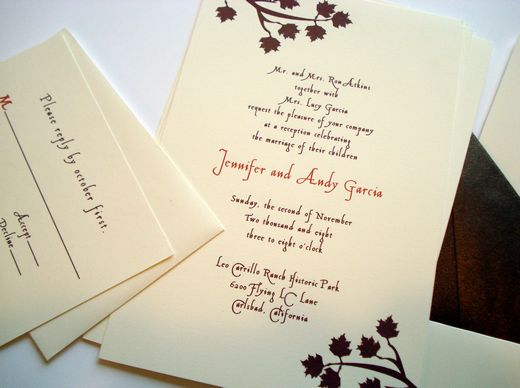 Mr. and Mrs. Ron Atkins
together with
Mrs. Lucy Garcia
request the pleasure of your company
at a reception celebrating
the marriage of their children
Jennifer and Andy Garcia
Sunday, the second of November
Two thousand and eight
three to eight o'clock
Leo Carrillo Ranch Historic Park
6200 Flying LC Lane
Carlsbad, California
Please reply by october first.
M
Accept
Decline